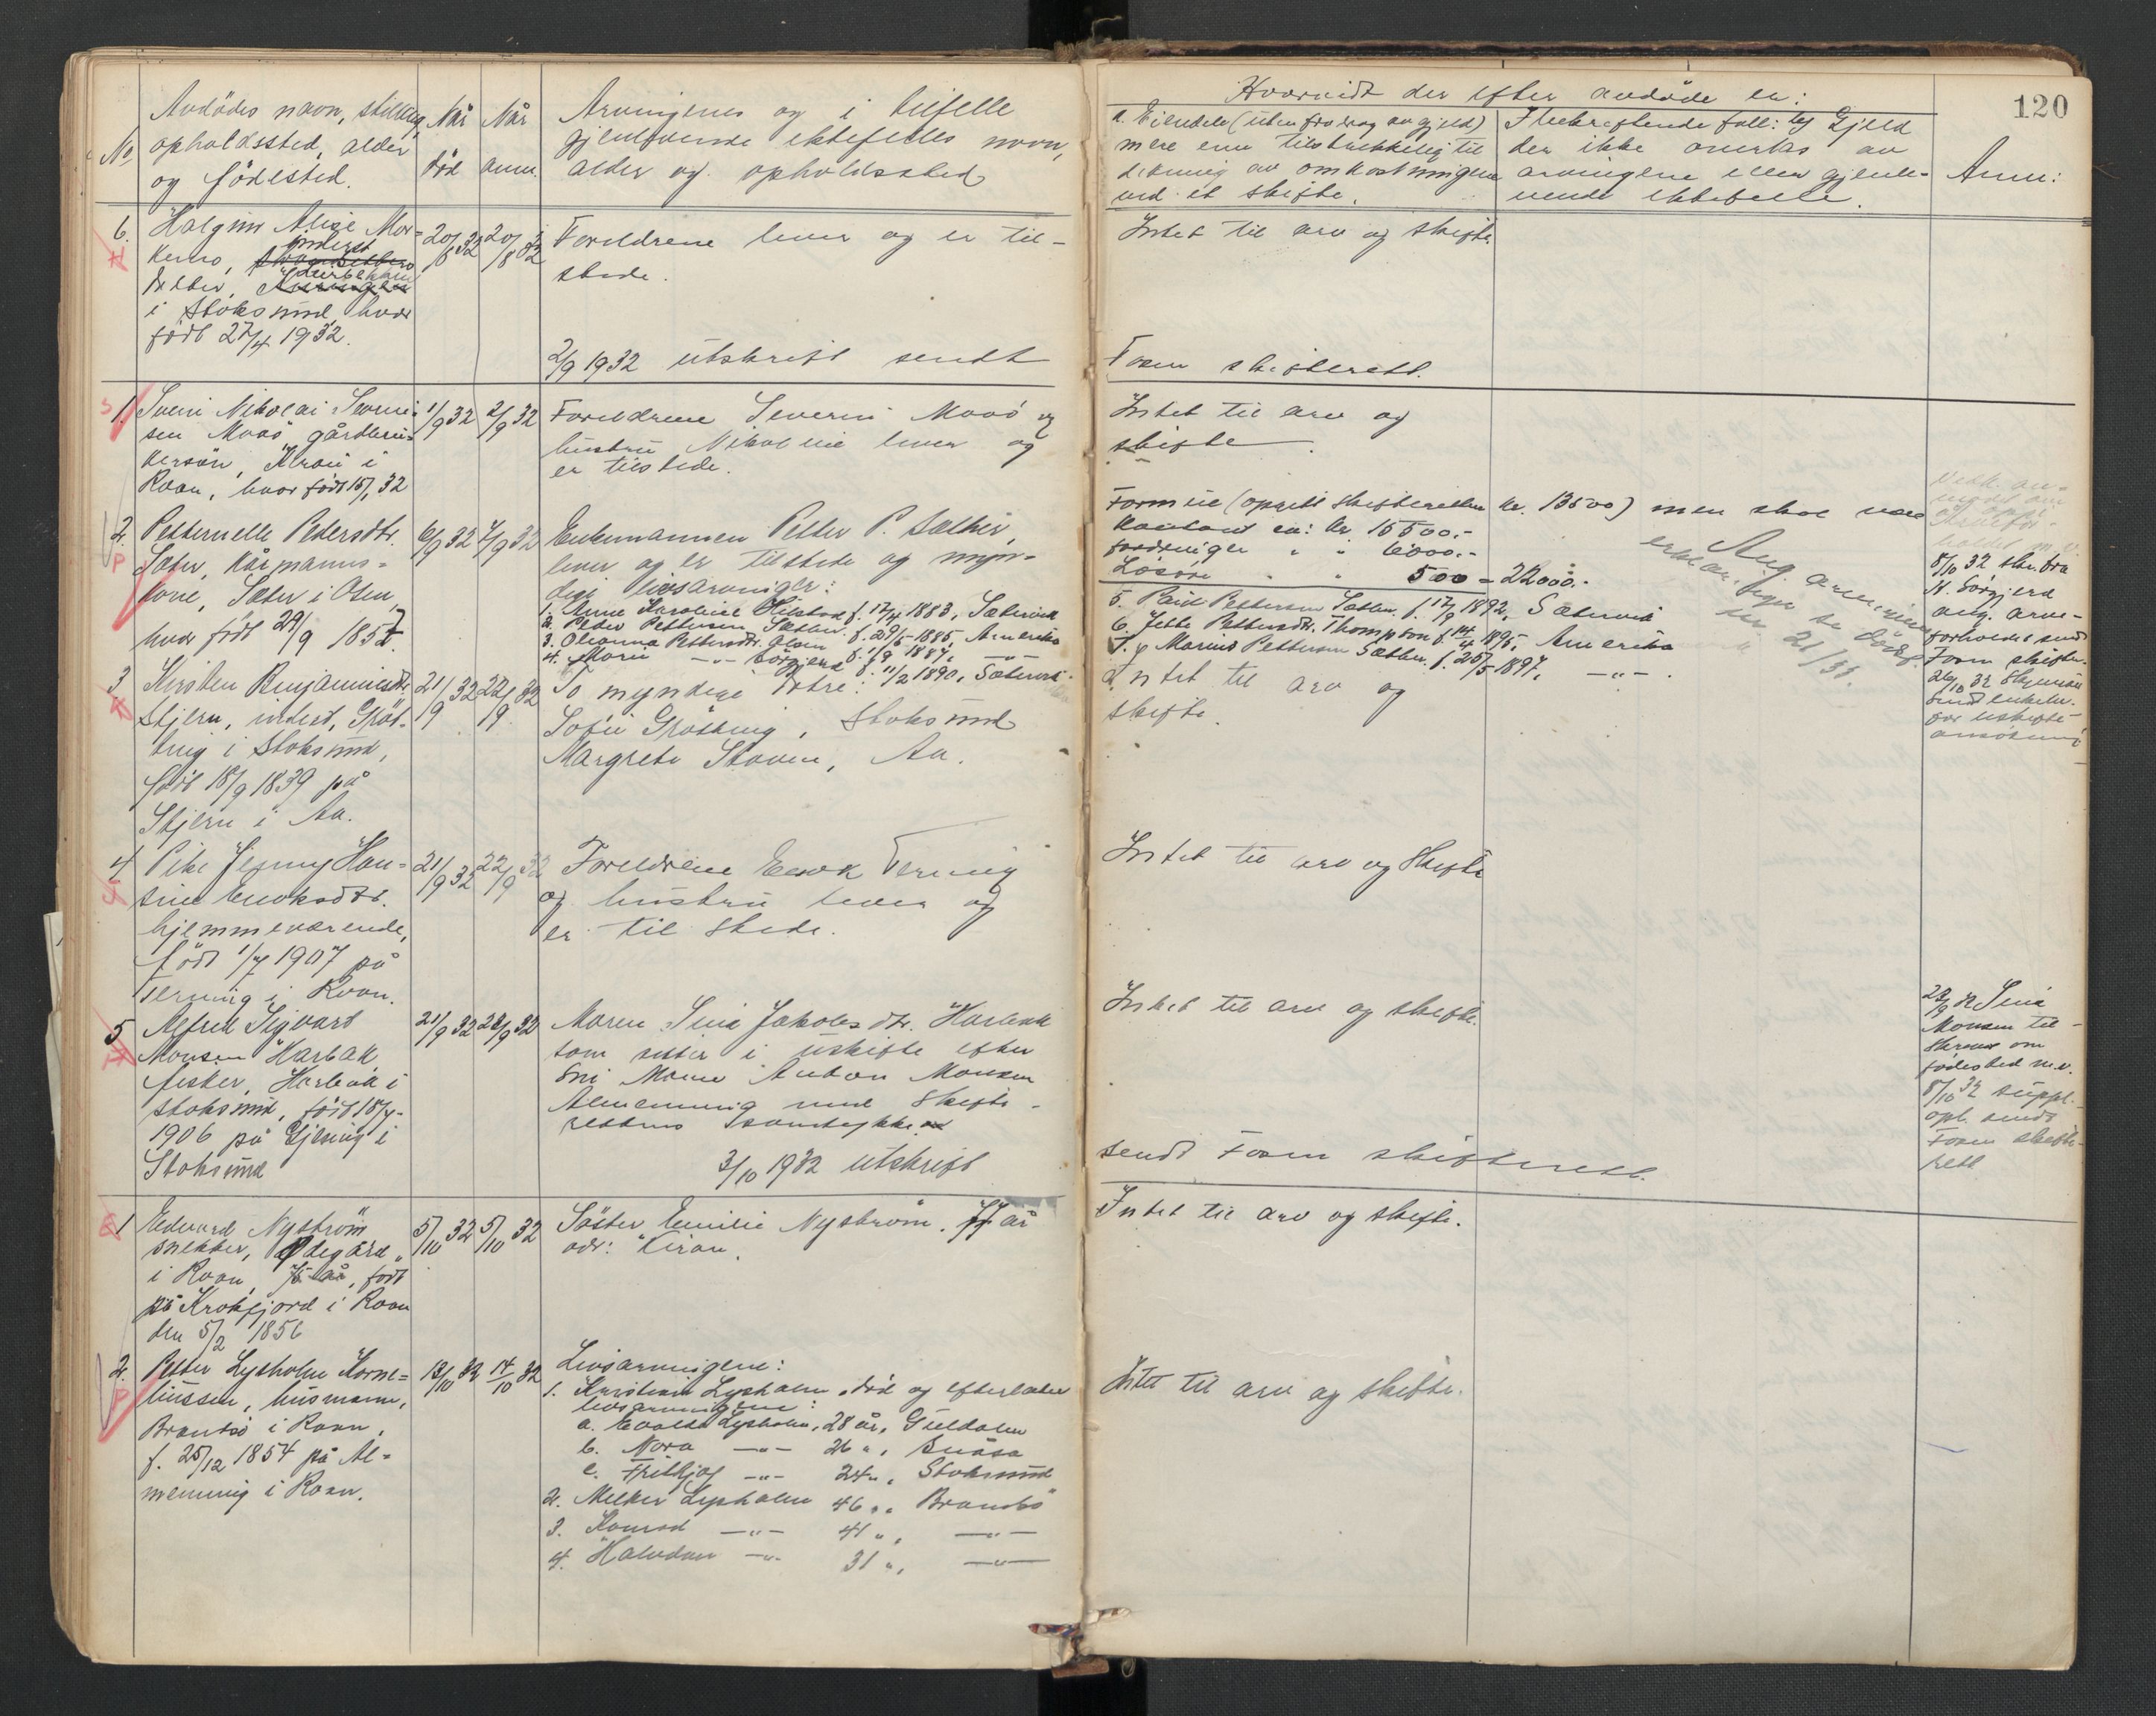 120
No
Avdödes navn, stilling,
opholdssted, alder
og födested.
Når
död
Når
anm.
Arvingenes og i tilfelle
gjenlevende ektefelles navn,
alder og opholdssted
Hvorvidt der efter avdöde er:
a. Eiendele (uten fradrag av gjeld)
mere enn tilstrekkelig til
dekning av omkostningene
ved et skifte.
I bekreftende fall: b) Gjeld
der ikke overtas av
arvingene eller gjenle-
vende ektefelle.
Anm:
6.
Alise
i Stoksund, hvor
född 27/4 1932.
20/8 32
20/8 32
Foreldrene lever og er til-
stede.
Intet til arv og skifte.
2/9 1932 utskrift sendt
Fosen skifterett.
1.
Svein Nikolai Severin-
sen Moaö, gårdbru-
kersön, Kiran i
Roan, hvor född 15/1 32
1/9 32
2/9 32
Foreldrene Severin Moaö og
hustru Nikoline lever og
er tilstede.
Intet til arv og
skifte.
2.
Petternelle Pedersdtr.
Sæter, kårmanns-
kone, Sæter i Osen,
hvor född 29/9 1857.
6/9 32
7/9 32
Enkemannen Petter P. Sæther,
lever og er tilstede og myn-
dige livsarvinger:
1. Anne Karoline Hilstad f. 17/4 1883, Sætervik
2. Peder Pettersen Sæther f. 29/5 1885, Amerika
3. Oleanna Pettersdtr. Olsen f. 11/9 1887, -"-
4. Marie -"- Sörgjerd f. 11/2 1890, Sætervik
Formue (opgitt skifteretten kr. 13500) men skal være
Kontant ca: kr. 15500.-
fordringer " " 6000.-
Lösöre " " 500 = 22000.-
5. Paul Pettersen Sæther f. 17/9 1892, Sætervik
6. Jette Pettersdtr. Thompson f. 14/4 1895, Amerika
7. Marius Pettersen Sæther f. 25/5 1897, -"-.
Ang. arvingene
21/33.
8/10 32 skr. fra
M. Sörgjerd
ang. arve-
forholdet sendt
Fosen skifter.
26/10 32
3
Kirsten Benjaminsdtr.
Stjern, inderst, Gröt-
ting i Stoksund,
född 18/9 1839 på
Stjern i Aa.
21/9 32
22/9 32
To myndige dötre:
Sofie Grötting, Stoksund
Margrete Staven, Aa.
Intet til arv og
skifte.
4
Pike Jenny Han-
sine Enoksdtr.
hjemmeværende,
född 1/7 1907 på
Terning i Roan.
21/9 32
22/9 32
Foreldrene Enok Terning
og hustru lever og
er til stede.
Intet til arv og skifte
5
Alfred Sigvart
Monsen Harbak
fisker, Harbak i
Stoksund, född 18/7-
1906 på Gjesing i
Stoksund
21/9 32
28/9 32
Maren Sina Jakobsdtr. Harbak
som sitter i uskifte efter
Almenning med skifte-
rettens samtykke
Intet til arv og skifte.
28/9 32 Sina
Monsen til-
skrevet om
födested m.v.
8/10 32 suppl.
opl. sendt
Fosen skifte-
rett
3/10 1932 utskrift
sendt Fosen skifterett.
1
Edvard Nyström
snekker, Ödegård
i Roan, född
på Krokfjord i Roan
den 5/2 1856
5/10 32
5/10 32
Söster Emilie Nyström. 77 år
adr: Kiran.
Intet til arv og skifte.
2.
Petter Lysholm Korne-
liussen, husmann,
Brandsö i Roan,
f. 25/12 1854 på Al-
menning i Roan.
13/10 32
14/10 32
Livsarvingene:
1. Kristian Lysholm, död og efterlater
livsarvingene:
a. Evalda Lysholm, 28 år, Guldalen
b. Nora -"- 26 ", Snåsa
c. Fritjof -"- 24 ", Stoksund
2. Melker Lysholm 46 ", Brandsö
3. Konrad -"- 41 ", -"-
4. Halvdan -"- 31 ", -"-
Intet til arv og skifte.